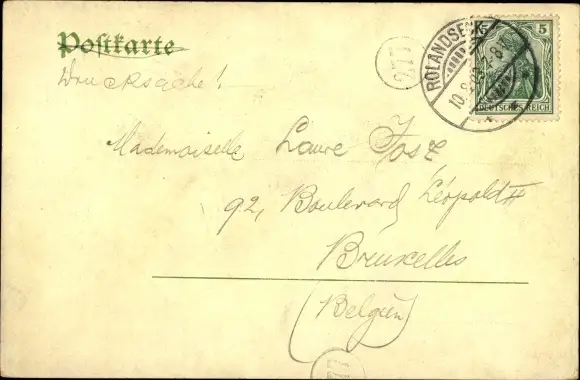 Postkarte
Drucksache!
ROLANDSECK
5
DEUTSCHES REICH
Mademoiselle Laure
92, Boulevard Léopold II
Bruxelles
(Belgien)